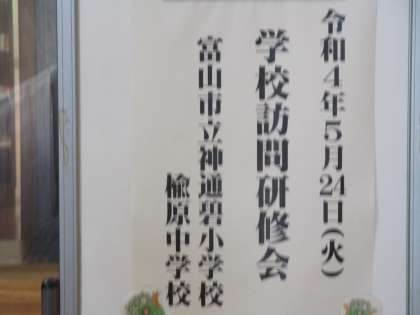 令和4年5月24日(火)
学校訪問研修会
富山市立神通碧小学校
楡原中学校